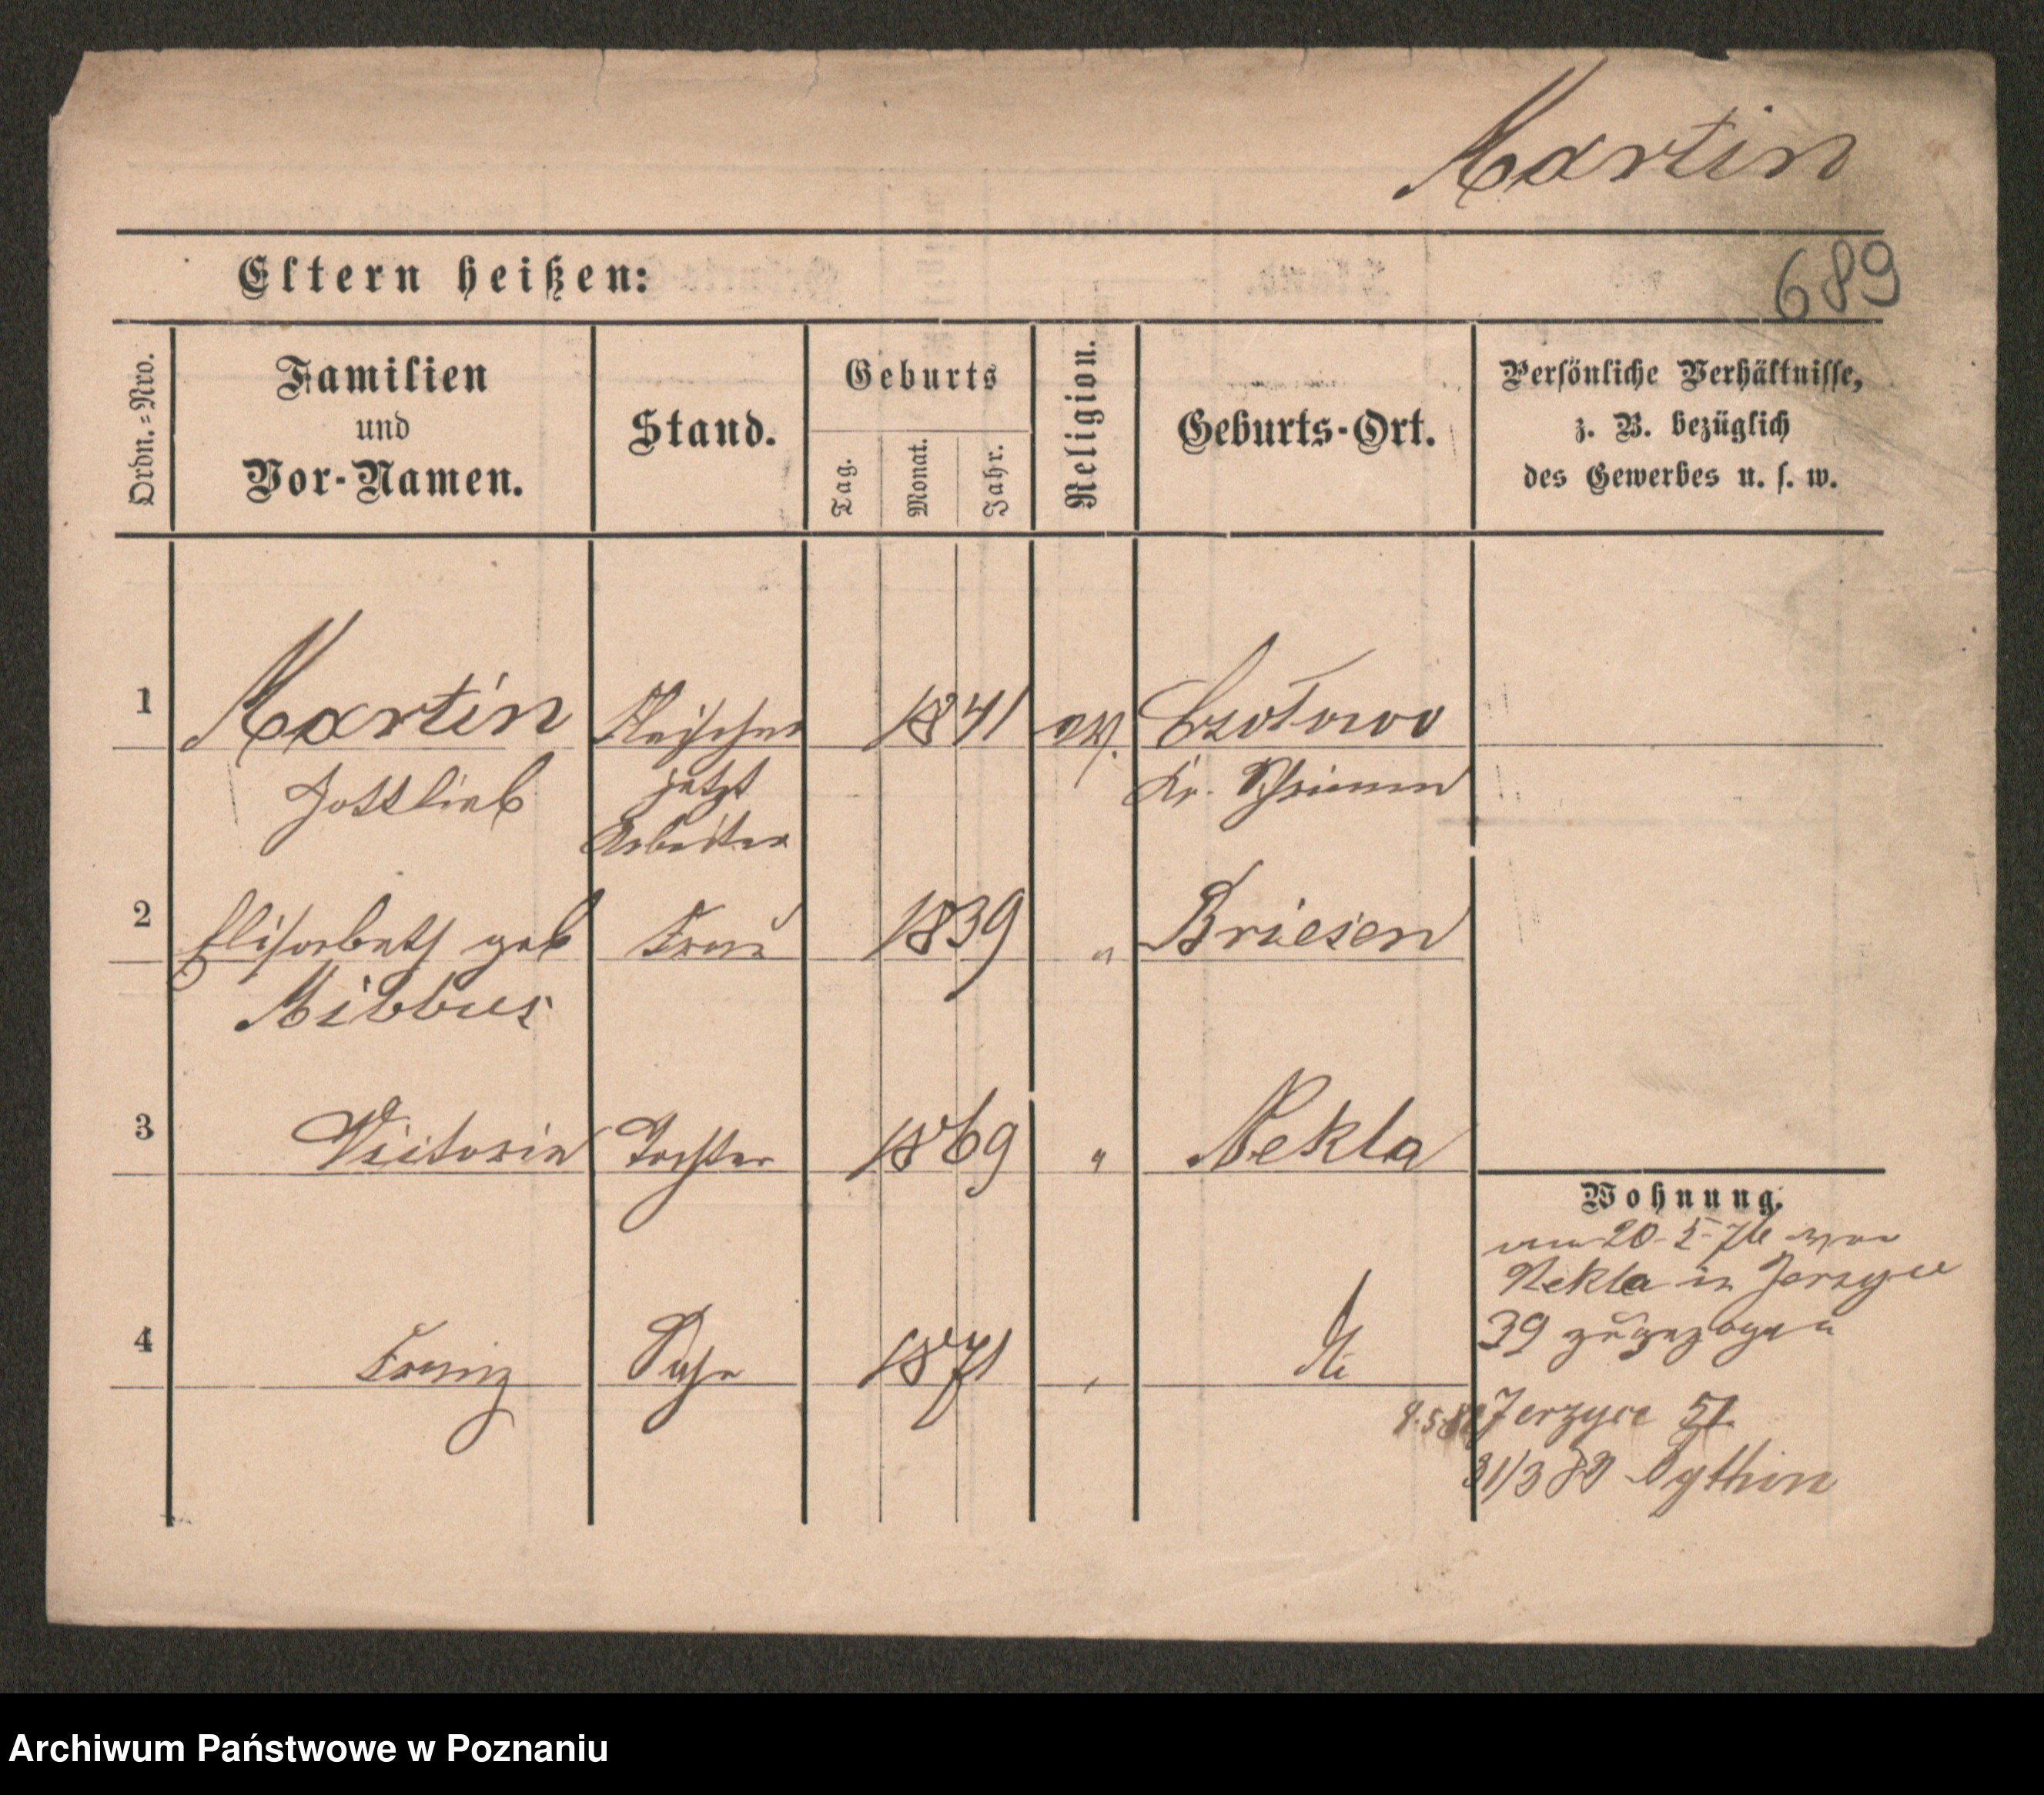 Martin
689
Eltern heißen:
Ordn.-Nro.
Familien
und
Vor-Namen.
Stand.
Geburts
Tag.
Monat.
Jahr.
Religion.
Geburts-Ort.
Persönliche Verhältnisse,
z. B. bezüglich
des Gewerbes u. s. w.
1 Martin Fleischer 1841 ev. Czołowo
Gottlieb jetzt Kr. Schrimm
Arbeiter
2 Elisabeth geb Frau 1839 " Briesen
Mibbus
3 Victoria Tochter 1869 " Nekla
Wohnung.
20-5-76 von
Nekla in Jerzyce
39 zugezogen
4 Franz Sohn 1871 "
Jerzyce 51
31/3 89
Archiwum Państwowe w Poznaniu